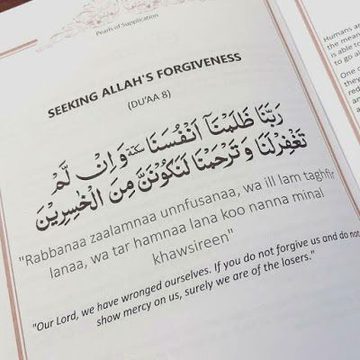 Pearls of Supplication
SEEKING ALLAH'S FORGIVENESS
(DU'AA 8)
رَبَّنَا ظَلَمْنَآ اَنْفُسَنَا سكتة وَاِنْ لَّمْ
تَغْفِرْلَنَا وَتَرْحَمْنَا لَنَكُوْنَنَّ مِنَ الْخٰسِرِيْنَ
"Rabbanaa zaalamnaa unnfusanaa, wa ill lam taghfir
lanaa, wa tar hamnaa lana koo nanna minal
khawsireen"
"Our Lord, we have wronged ourselves. If you do not forgive us and do not
show mercy on us, surely we are of the losers."
Humans a
the mean
is able t
to go al
One o
they
red
an